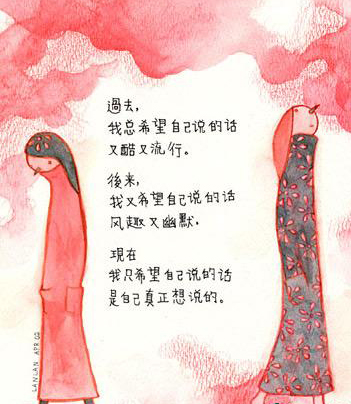 過去,
我总希望自己说的话
又酷又流行。
後来,
我又希望自己说的话
风趣又幽默.
現在
我只希望自己说的话
是自己真正想说的。
LANLAN APR.02